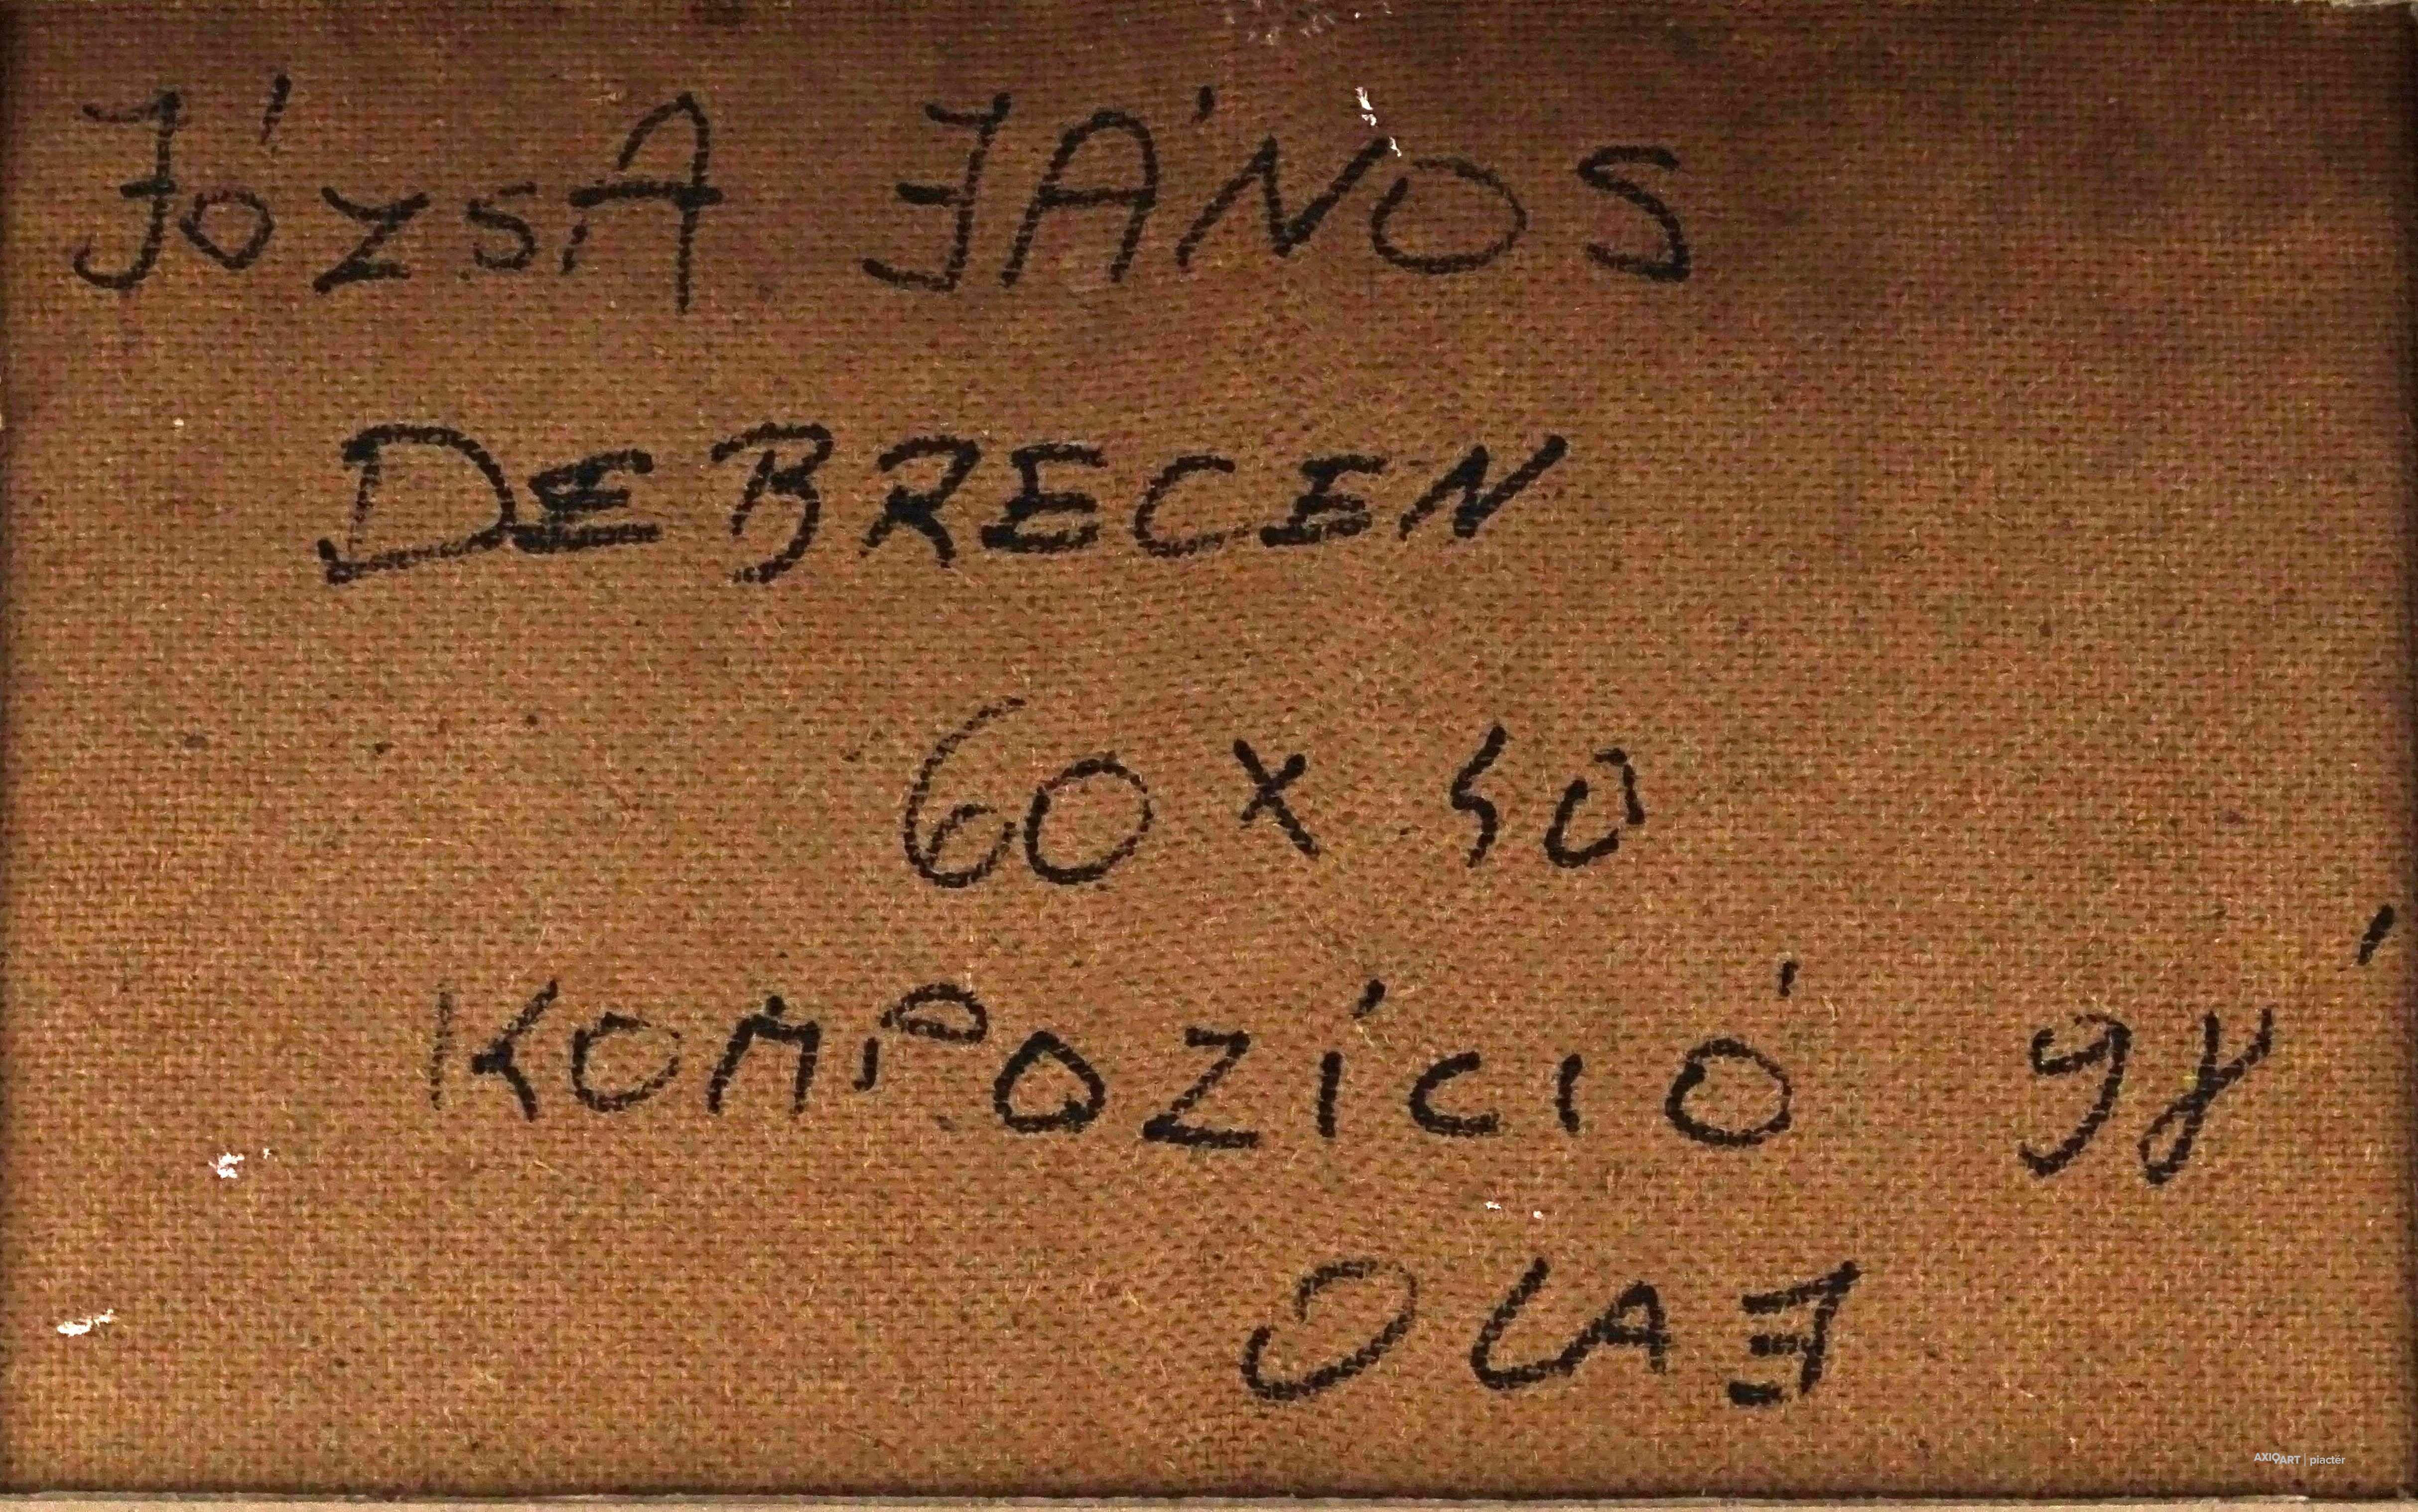 JÓZSA JÁNOS
DEBRECEN
60 x 40
KOMPOZÍCIÓ 98'
OLAJ
AXIOART | piactér